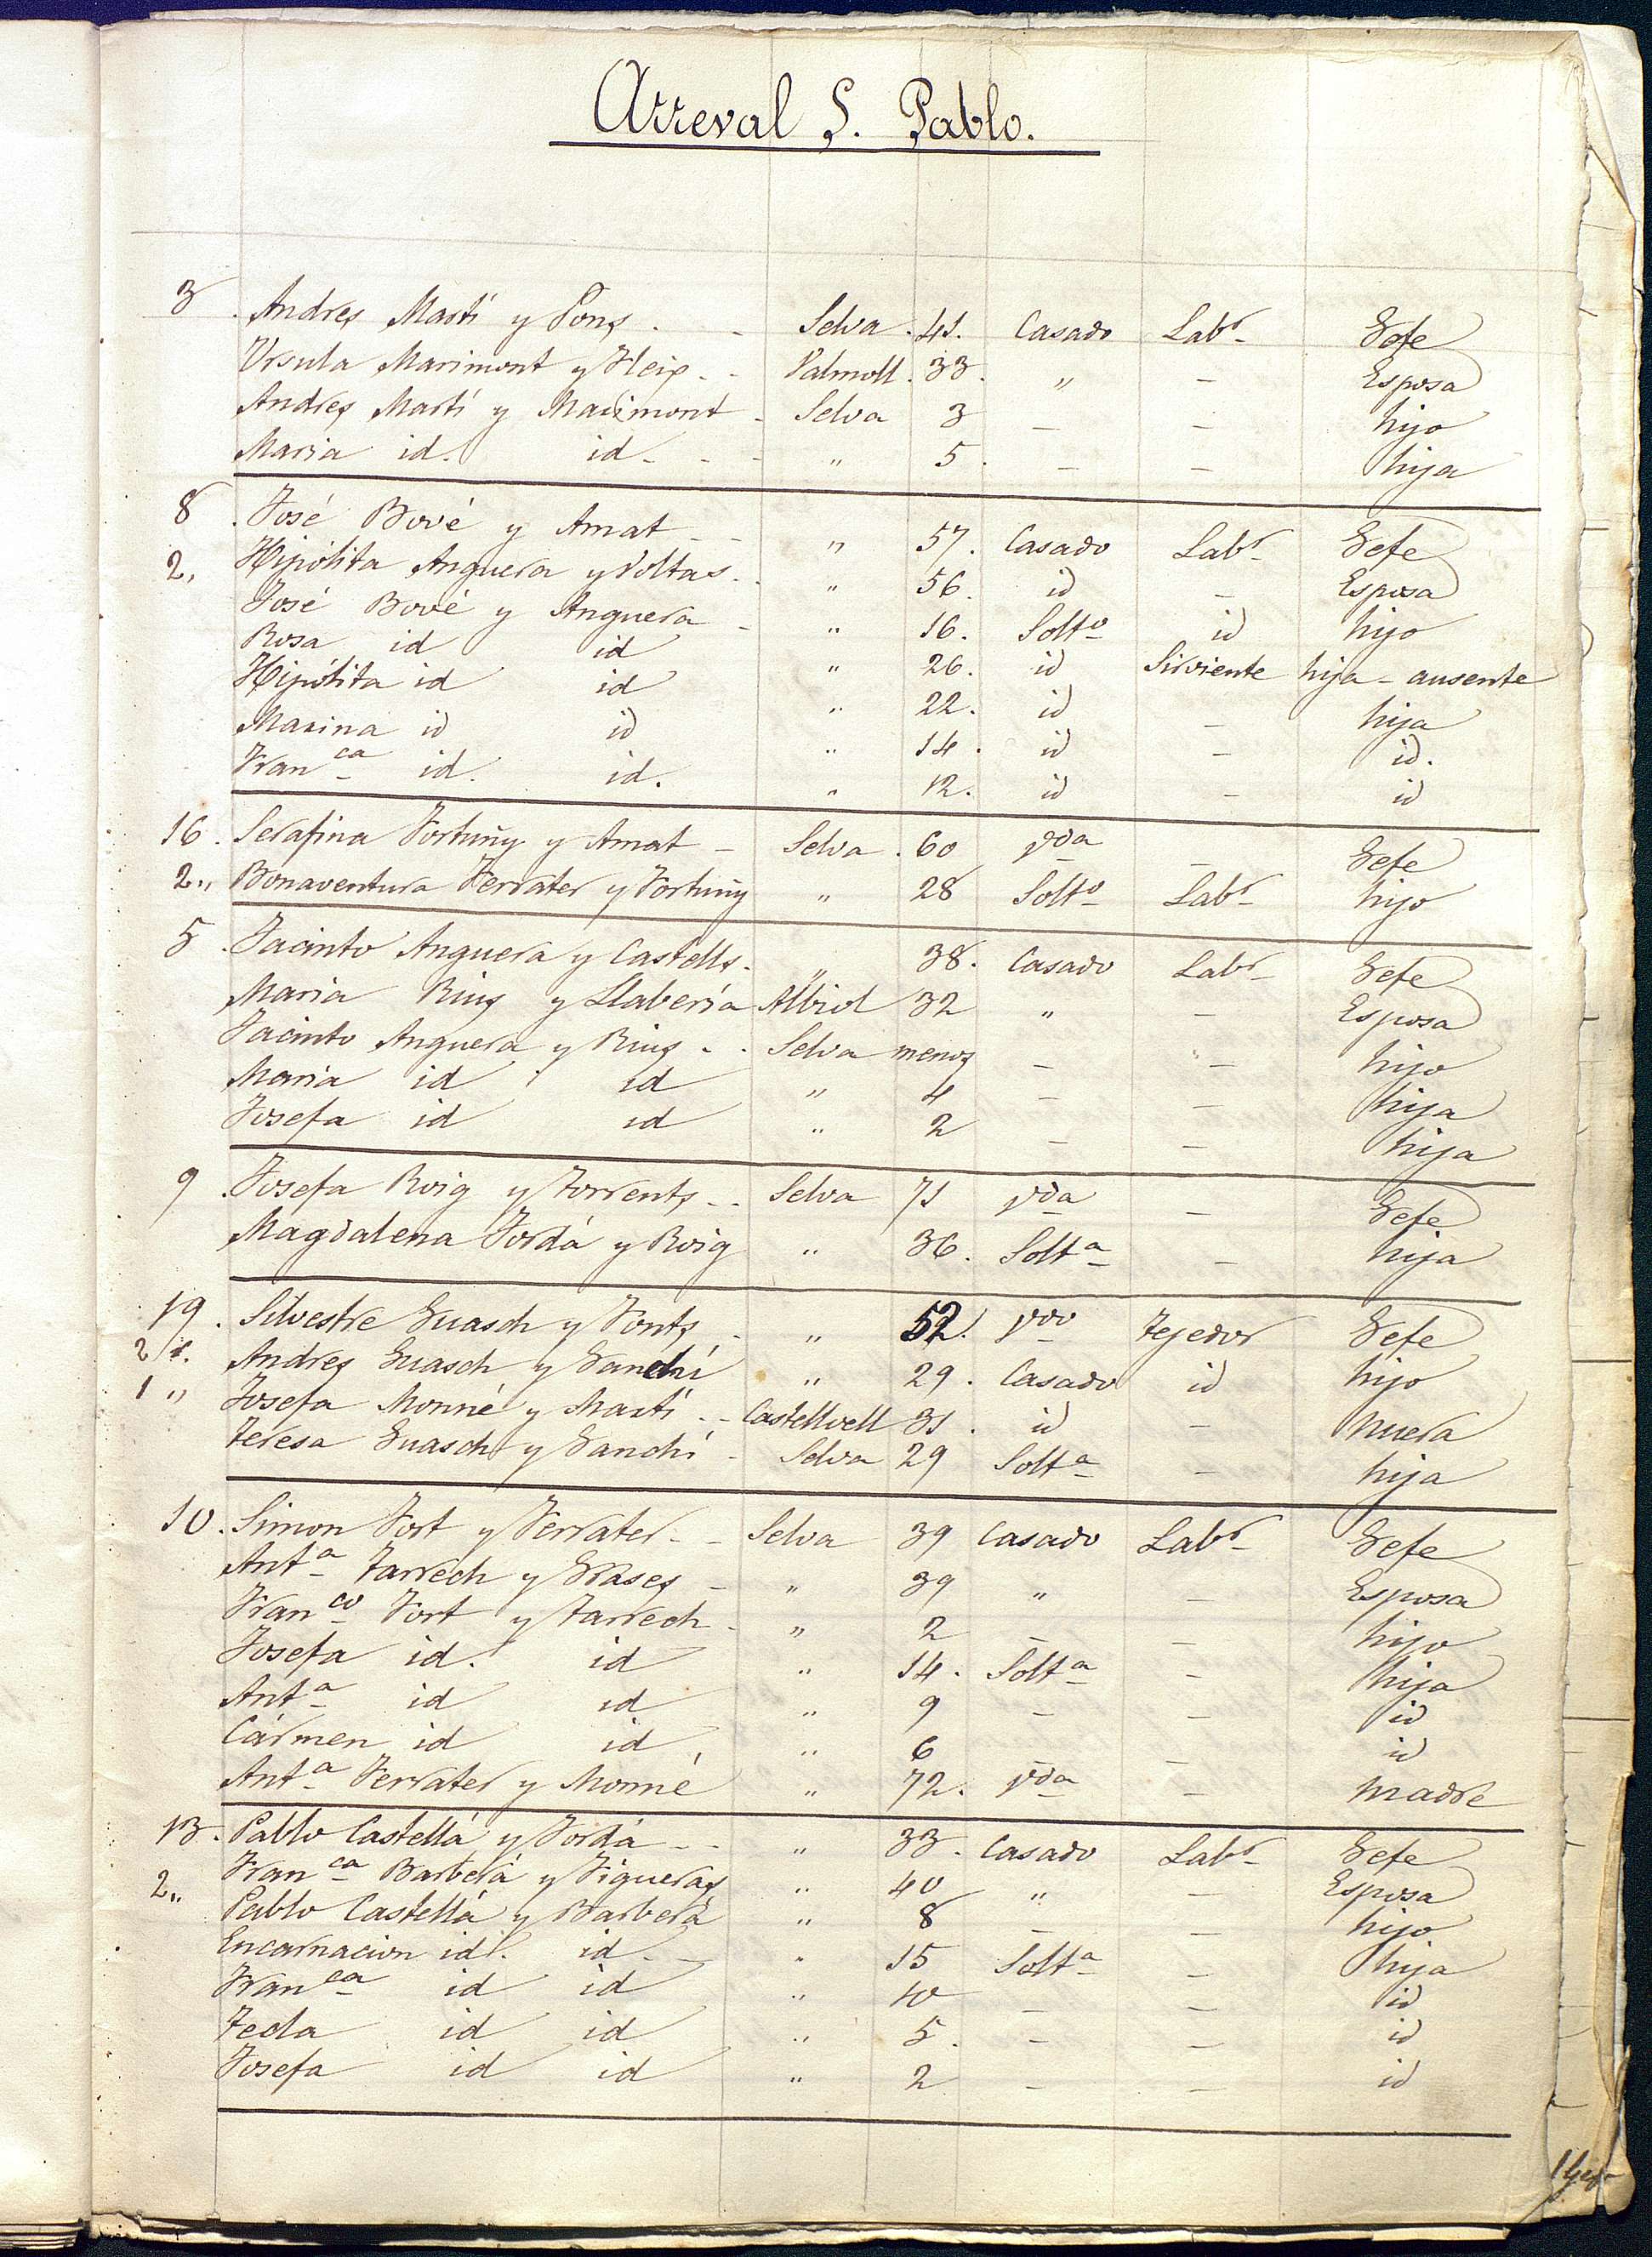 Arreval S. Pablo.
3 . Andres Martí y Pons . - Selva . 41. Casado Labr Gefe
Ursula Marimont y Fleix - - Valmoll . 33 . " - Esposa
Andres Martí y Marimont - Selva 3 - - hijo
Maria id. id - - - " 5 . - - hija
8 . José Bové y Amat - - " 57. Casado Labr Gefe
2, Hipólita Anguera y Voltas - " 56. id - Esposa
José Bové y Anguera - " 16. Solto id hijo
Rosa id id " 26. id Sirviente hija - ausente
Hipólita id id " 22. id - hija
Marina id id " 14 . id - id.
Franca id. id. " 12. id - id
16 . Serafina Fortuny y Amat - Selva . 60 Vda - Gefe
2 " Bonaventura Ferrater y Fortuny " 28 Solto Labr hijo
5 . Jacinto Anguera y Castells - " 38. Casado Labr Gefe
Maria Rius y Llaberia Albiol 32 " - Esposa
Jacinto Anguera y Rius - . Selva menos - - hijo
Maria id id " 4 - - hija
Josefa id id " 2 - - hija
9 . Josefa Roig y Torrents - . Selva 71 Vda - Gefe
Magdalena Jordá y Roig " 36. Solta - hija
19 . Silvestre Guasch y Fonts - " 52. Vdo Tejedor Gefe
2 Andres Guasch y Ganchí " 29 . Casado id hijo
1 " Josefa Monné y Martí . - Castellvell 31 . id - nuera
Teresa Guasch y Ganchí - Selva 29 Solta - hija
10 . Simon Fort y Ferrater - - Selva 39 Casado Labr Gefe
Anta Tarrech y Grases - " 39 " - Esposa
Franco Fort y Tarrech - " 2 - - hijo
Josefa id. id " 14 . Solta - hija
Anta id id " 9 - - id
Cármen id id " 6 - - id
Anta Ferrater y Monné " 72. Vda - madre
13 . Pablo Castellá y Jordá - - " 33 . Casado Labr Gefe
Franca Barberá y Figueras " 40 " - Esposa
2 " Pablo Castellá y Barberá " 8 - - hijo
Encarnacion id. id - - " 15 Solta - hija
Franca id id " 10 - - id
Tecla id id " 5 . - - id
Josefa id id " 2 - - id